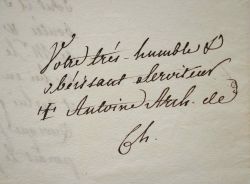 Votre très-humble &
obéissant serviteur
✝ Antoine Arch. de
Ch.